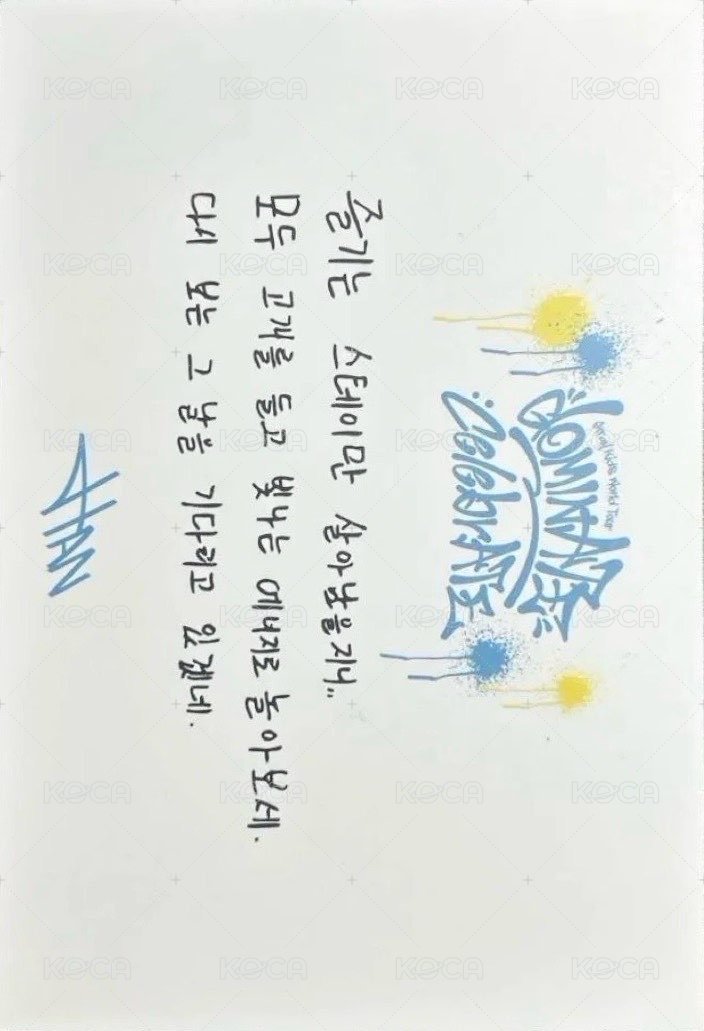 Stray Kids World Tour
dominATE
celebrATE
즐기는 스테이만 살아남을지니..
모두 고개를 들고 빛나는 에너지로 놀아보세.
다시 보는 그 날을 기다리고 있겠네.
HAN
KOCA